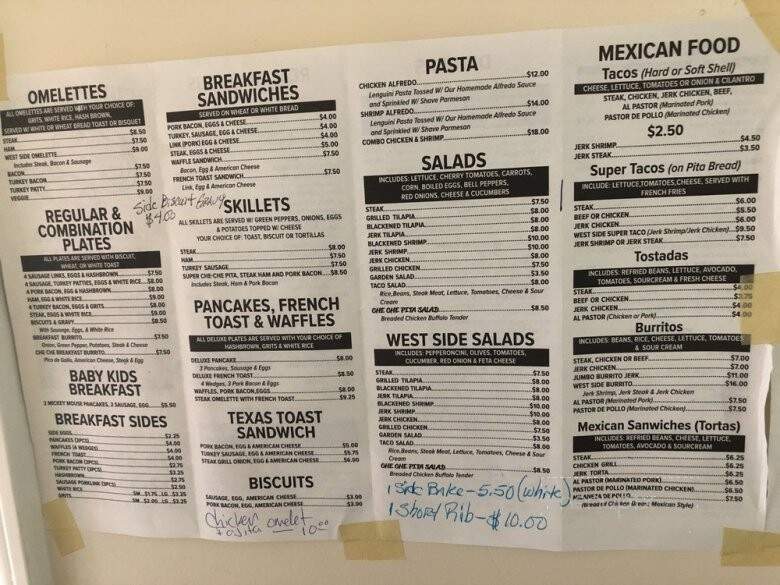 OMELETTES
ALL OMELETTES ARE SERVED WITH YOUR CHOICE OF:
GRITS, WHITE RICE, HASH BROWN,
SERVED W/ WHITE OR WHEAT BREAD TOAST OR BISQUET
STEAK $8.50
HAM $7.50
WEST SIDE OMELETTE $9.00
Includes Steak, Bacon & Sausage
BACON $7.50
TURKEY BACON $7.50
TURKEY PATTY $7.50
VEGGIE $9.00
Side Biscuit Gravy
$4.00
REGULAR &
COMBINATION
PLATES
ALL PLATES ARE SERVED WITH BISCUIT,
WHEAT, OR WHITE TOAST
4 SAUSAGE LINKS, EGGS & HASHBROWN $7.50
4 SAUSAGE, TURKEY PATTIES, EGGS & WHITE RICE $8.00
4 PORK BACON, EGG & HASHBROWN $8.00
HAM, EGG & WHITE RICE $9.00
4 TURKEY BACON, EGGS & GRITS $8.00
STEAK, EGGS & WHITE RICE $9.00
BISCUITS & GRAVY $8.50
With Sausage, Eggs, & White Rice
BREAKFAST BURRITO $7.50
Onion, Green Pepper, Potatoes, Steak & Cheese
CHE CHE BREAKFAST BURRITO $7.50
Pico de Gallo, American Cheese, Steak & Egg
BABY KIDS
BREAKFAST
3 MICKEY MOUSE PANCAKES, 3 SAUSAGE, EGG $5.50
BREAKFAST SIDES
SIDE EGGS $2.25
PANCAKES (3PCS) $4.00
WAFFLES (4 WEDGES) $4.00
FRENCH TOAST $4.00
PORK BACON (4PCS) $2.75
TURKEY PATTY (2PCS) $3.25
HASHBROWN $2.25
SAUSAGE PORKLINK (2PCS) $2.75
WHITE RICE $2.50
GRITS SM $1.75 LG $3.25
SM $2.00 LG $3.25
BREAKFAST
SANDWICHES
SERVED ON WHEAT OR WHITE BREAD
PORK BACON, EGGS & CHEESE $4.00
TURKEY, SAUSAGE, EGG & CHEESE $4.00
LINK (PORK) EGG & CHEESE $4.00
STEAK, EGGS & CHEESE $5.00
WAFFLE SANDWICH $7.50
Bacon, Egg & American Cheese
FRENCH TOAST SANDWICH $7.50
Link, Egg & American Cheese
SKILLETS
ALL SKILLETS ARE SERVED W/ GREEN PEPPERS, ONIONS, EGGS
& POTATOES TOPPED W/ CHEESE
YOUR CHOICE OF: TOAST, BISCUIT OR TORTILLAS
STEAK $8.00
HAM $7.50
TURKEY SAUSAGE $7.50
SUPER CHE CHE PITA, STEAK HAM AND PORK BACON $8.50
Includes Steak, Ham & Pork Bacon
PANCAKES, FRENCH
TOAST & WAFFLES
ALL DELUXE PANCAKES ARE SERVED WITH YOUR CHOICE OF
HASHBROWN, GRITS & WHITE RICE
DELUXE PANCAKE $8.00
3 Pancakes, Sausage & Eggs
DELUXE FRENCH TOAST $8.50
4 Wedges, 3 Pork Bacon & Eggs
WAFFLES, PORK BACON, EGGS $8.00
STEAK OMELETTE WITH FRENCH TOAST $9.25
TEXAS TOAST
SANDWICH
PORK BACON, EGG & AMERICAN CHEESE $5.00
TURKEY SAUSAGE, EGG & AMERICAN CHEESE $5.75
STEAK GRILL ONION, EGG & AMERICAN CHEESE $6.00
BISCUITS
SAUSAGE, EGG, AMERICAN CHEESE $3.00
PORK BACON, EGG, AMERICAN CHEESE $3.00
Chicken omelet
Fajita 10.00
PASTA
CHICKEN ALFREDO $12.00
Lenguini Pasta Tossed W/ Our Homemade Alfredo Sauce
and Sprinkled W/ Shave Parmesan
SHRIMP ALFREDO $14.00
Lenguini Pasta Tossed W/ Our Homemade Alfredo Sauce
and Sprinkled W/ Shave Parmesan
COMBO CHICKEN & SHRIMP $18.00
SALADS
INCLUDES: LETTUCE, CHERRY TOMATOES, CARROTS,
CORN, BOILED EGGS, BELL PEPPERS,
RED ONIONS, CHEESE & CUCUMBERS
STEAK $7.50
GRILLED TILAPIA $8.00
BLACKENED TILAPIA $8.00
JERK TILAPIA $8.00
BLACKENED SHRIMP $10.00
JERK SHRIMP $10.00
JERK CHICKEN $8.00
GRILLED CHICKEN $7.50
GARDEN SALAD $3.50
TACO SALAD $8.00
Rice, Beans, Steak Meat, Lettuce, Tomatoes, Cheese & Sour
Cream
CHE CHE PITA SALAD $8.50
Breaded Chicken Buffalo Tender
WEST SIDE SALADS
INCLUDES: PEPPERONCINI, OLIVES, TOMATOES,
CUCUMBER, RED ONION & FETA CHEESE
STEAK $7.50
GRILLED TILAPIA $8.00
BLACKENED TILAPIA $8.00
JERK TILAPIA $8.00
BLACKENED SHRIMP $10.00
JERK SHRIMP $10.00
JERK CHICKEN $8.00
GRILLED CHICKEN $7.50
GARDEN SALAD $3.50
TACO SALAD $8.00
Rice, Beans, Steak Meat, Lettuce, Tomatoes, Cheese & Sour
Cream
CHE CHE PITA SALAD $8.50
Breaded Chicken Buffalo Tender
1 Side Brike - 5.50 (White)
1 Short Rib - $10.00
MEXICAN FOOD
Tacos (Hard or Soft Shell)
CHEESE, LETTUCE, TOMATOES OR ONION & CILANTRO
STEAK, CHICKEN, JERK CHICKEN, BEEF,
AL PASTOR (Marinated Pork)
PASTOR DE POLLO (Marinated Chicken)
$2.50
JERK SHRIMP $4.50
JERK STEAK $3.50
Super Tacos (on Pita Bread)
INCLUDE: LETTUCE,TOMATOES,CHEESE, SERVED WITH
FRENCH FRIES
STEAK $6.00
BEEF OR CHICKEN $5.50
JERK CHICKEN $6.00
WEST SIDE SUPER TACO (Jerk Shrimp/Jerk Chicken) $9.50
JERK SHRIMP OR JERK STEAK $7.50
Tostadas
INCLUDES: REFRIED BEANS, LETTUCE, AVOCADO,
TOMATOES, SOURCREAM & FRESH CHEESE
STEAK $4.00
BEEF OR CHICKEN $3.75
JERK CHICKEN $4.00
AL PASTOR (Chicken or Pork) $4.00
Burritos
INCLUDES: BEANS, RICE, CHEESE, LETTUCE, TOMATOES
& SOUR CREAM
STEAK, CHICKEN OR BEEF $7.00
JERK CHICKEN $7.00
JUMBO BURRITO JERK $11.00
WEST SIDE BURRITO $16.00
Jerk Shrimp, Jerk Steak & Jerk Chicken
AL PASTOR (Marinated Pork) $7.50
PASTOR DE POLLO (Marinated Chicken) $7.50
Mexican Sanwiches (Tortas)
INCLUDES: REFRIED BEANS, CHEESE, LETTUCE,
TOMATOES, AVOCADO & SOURCREAM
STEAK $6.25
CHICKEN GRILL $6.25
JERK TORTA $6.25
AL PASTOR (MARINATED PORK) $6.50
PASTOR DE POLLO (MARINATED CHICKEN) $6.50
MILANEZA DE POLLO $7.50
(Breaded Chicken Breast Mexican Style)